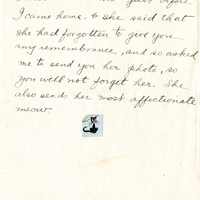 I came home, & she said that
she had forgotten to give you
my remembrance, and so asked
me to send you her photo, so
you will not forget her. She
also sends her most affectionate
meow.